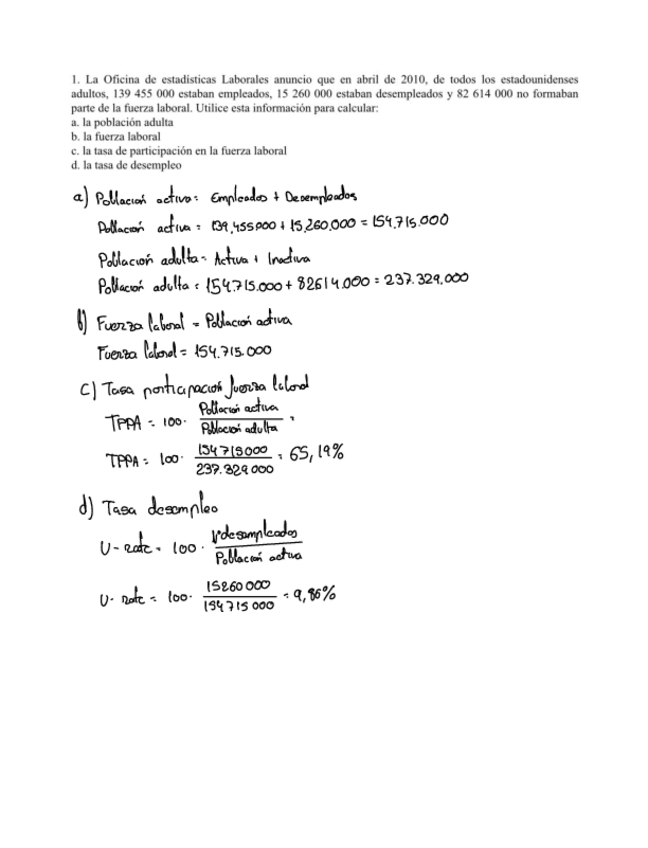 1. La Oficina de estadísticas Laborales anuncio que en abril de 2010, de todos los estadounidenses
adultos, 139 455 000 estaban empleados, 15 260 000 estaban desempleados y 82 614 000 no formaban
parte de la fuerza laboral. Utilice esta información para calcular:
a. la población adulta
b. la fuerza laboral
c. la tasa de participación en la fuerza laboral
d. la tasa de desempleo
a) Población activa: Empleados + Desempleados
Población activa = 139,455,000 + 15,260,000 = 154.715.000
Población adulta = Activa + Inactiva
Población adulta = 154.715.000 + 82614.000 = 237.329.000
b) Fuerza laboral = Población activa
Fuerza laboral = 154.715.000
c) Tasa participación fuerza laboral
TPPA = 100 · Población activa / Población adulta =
TPPA = 100 · 154715000 / 237.329.000 = 65,19%
d) Tasa desempleo
U-rate = 100 · Nº desempleados / Población activa
U-rate = 100 · 15260000 / 154715000 = 9,86%